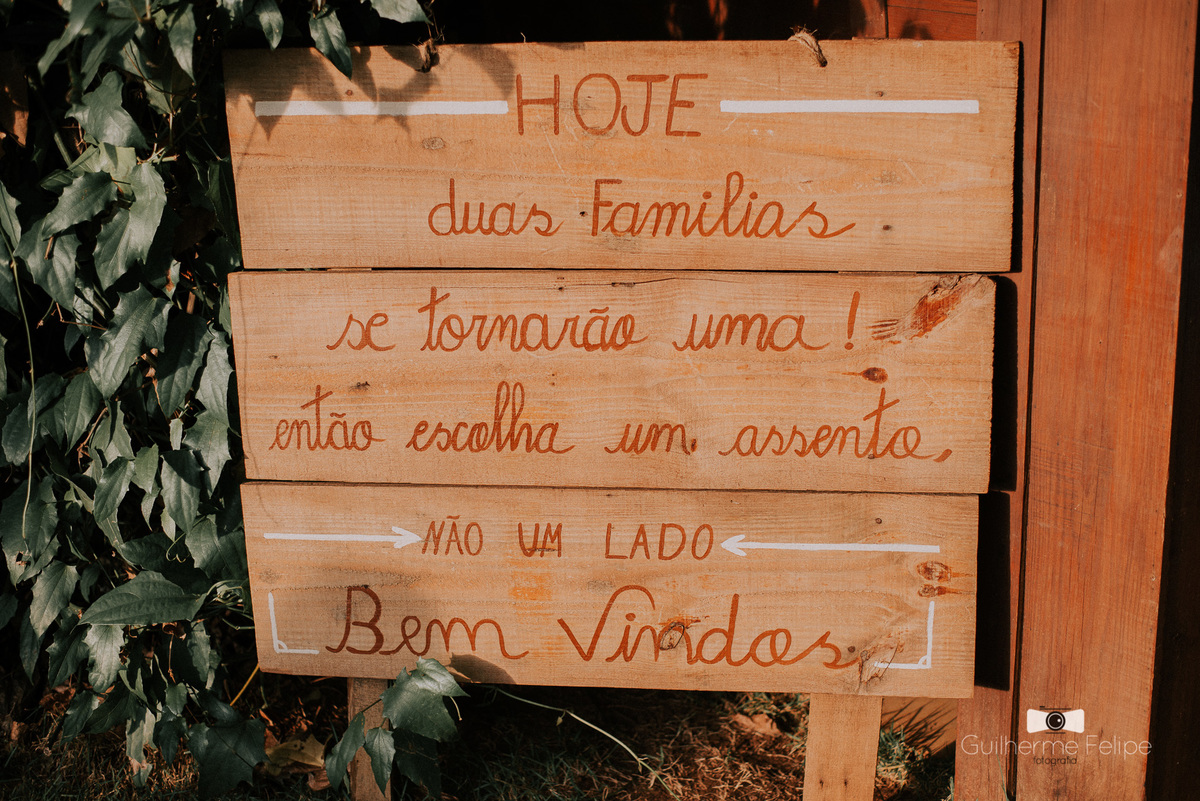 HOJE
duas Familias
se tornarão uma!
então escolha um assento,
NÃO UM LADO
Bem Vindos
Guilherme Felipe
fotografia